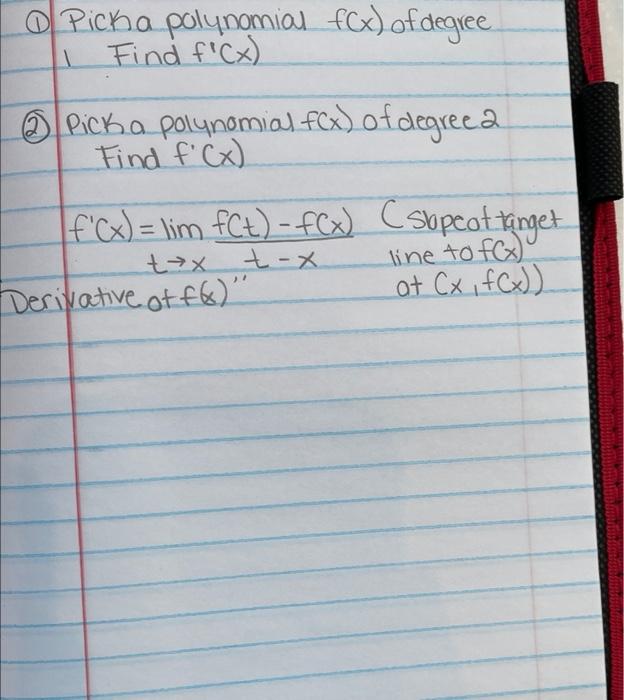 ① Pick a polynomial f(x) of degree
1 Find f'(x)
② Pick a polynomial f(x) of degree 2
Find f'(x)
f'(x) = lim f(t) - f(x) (slope of tanget
t→x t - x line to f(x)
Derivative of f(x)" at (x, f(x))